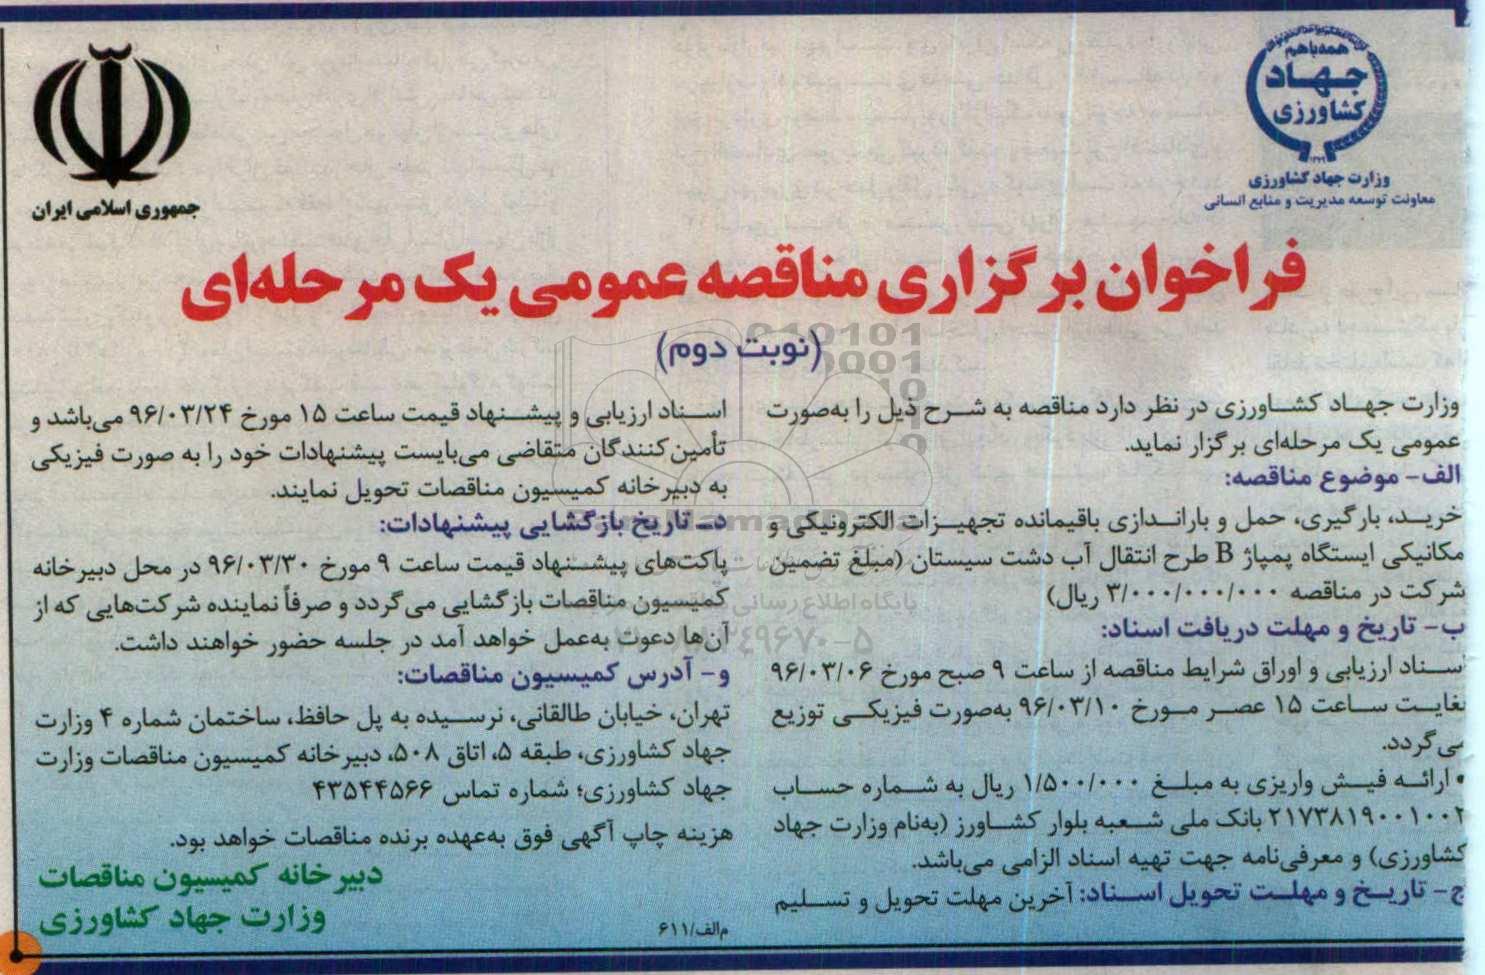 همه با هم
جهاد
کشاورزی
وزارت جهاد کشاورزی
معاونت توسعه مدیریت و منابع انسانی
جمهوری اسلامی ایران
فراخوان برگزاری مناقصه عمومی یک مرحله‌ای
(نوبت دوم)
وزارت جهاد کشاورزی در نظر دارد مناقصه به شرح ذیل را به‌صورت
عمومی یک مرحله‌ای برگزار نماید.
الف- موضوع مناقصه:
خرید، بارگیری، حمل و باراندازی باقیمانده تجهیزات الکترونیکی و
مکانیکی ایستگاه پمپاژ B طرح انتقال آب دشت سیستان (مبلغ تضمین
شرکت در مناقصه ۳/۰۰۰/۰۰۰/۰۰۰ ریال)
ب- تاریخ و مهلت دریافت اسناد:
اسناد ارزیابی و اوراق شرایط مناقصه از ساعت ۹ صبح مورخ ۹۶/۰۳/۰۶
لغایت ساعت ۱۵ عصر مورخ ۹۶/۰۳/۱۰ به‌صورت فیزیکی توزیع
می‌گردد.
• ارائه فیش واریزی به مبلغ ۱/۵۰۰/۰۰۰ ریال به شماره حساب
۲۱۷۳۸۱۹۰۰۱۰۰۲ بانک ملی شعبه بلوار کشاورز (به‌نام وزارت جهاد
کشاورزی) و معرفی‌نامه جهت تهیه اسناد الزامی می‌باشد.
ج- تاریخ و مهلت تحویل اسناد: آخرین مهلت تحویل و تسلیم
اسناد ارزیابی و پیشنهاد قیمت ساعت ۱۵ مورخ ۹۶/۰۳/۲۴ می‌باشد و
تأمین‌کنندگان متقاضی می‌بایست پیشنهادات خود را به صورت فیزیکی
به دبیرخانه کمیسیون مناقصات تحویل نمایند.
د- تاریخ بازگشایی پیشنهادات:
پاکت‌های پیشنهاد قیمت ساعت ۹ مورخ ۹۶/۰۳/۳۰ در محل دبیرخانه
کمیسیون مناقصات بازگشایی می‌گردد و صرفاً نماینده شرکت‌هایی که از
آن‌ها دعوت به‌عمل خواهد آمد در جلسه حضور خواهند داشت.
و- آدرس کمیسیون مناقصات:
تهران، خیابان طالقانی، نرسیده به پل حافظ، ساختمان شماره ۴ وزارت
جهاد کشاورزی، طبقه ۵، اتاق ۵۰۸، دبیرخانه کمیسیون مناقصات وزارت
جهاد کشاورزی؛ شماره تماس ۴۳۵۴۴۵۶۶
هزینه چاپ آگهی فوق به‌عهده برنده مناقصات خواهد بود.
دبیرخانه کمیسیون مناقصات
وزارت جهاد کشاورزی
م‌الف/۶۱۱